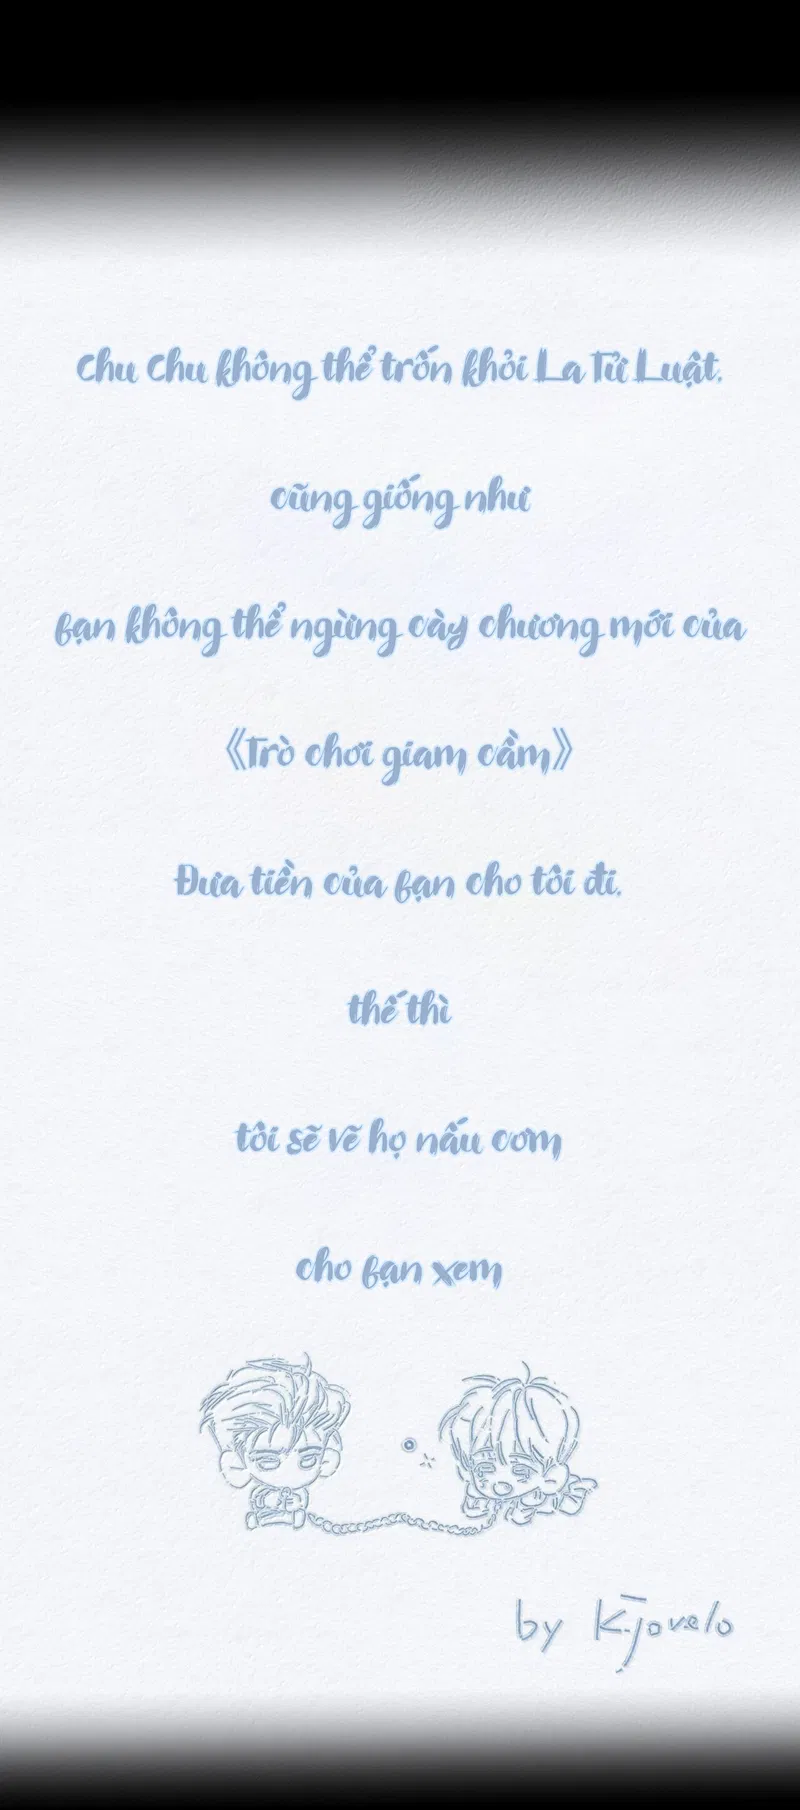 Chu Chu không thể trốn khỏi La Tử Luật,
cũng giống như
bạn không thể ngừng cày chương mới của
《Trò chơi giam cầm》
Đưa tiền của bạn cho tôi đi,
thế thì
tôi sẽ vẽ họ nấu cơm
cho bạn xem
by K.jovelo